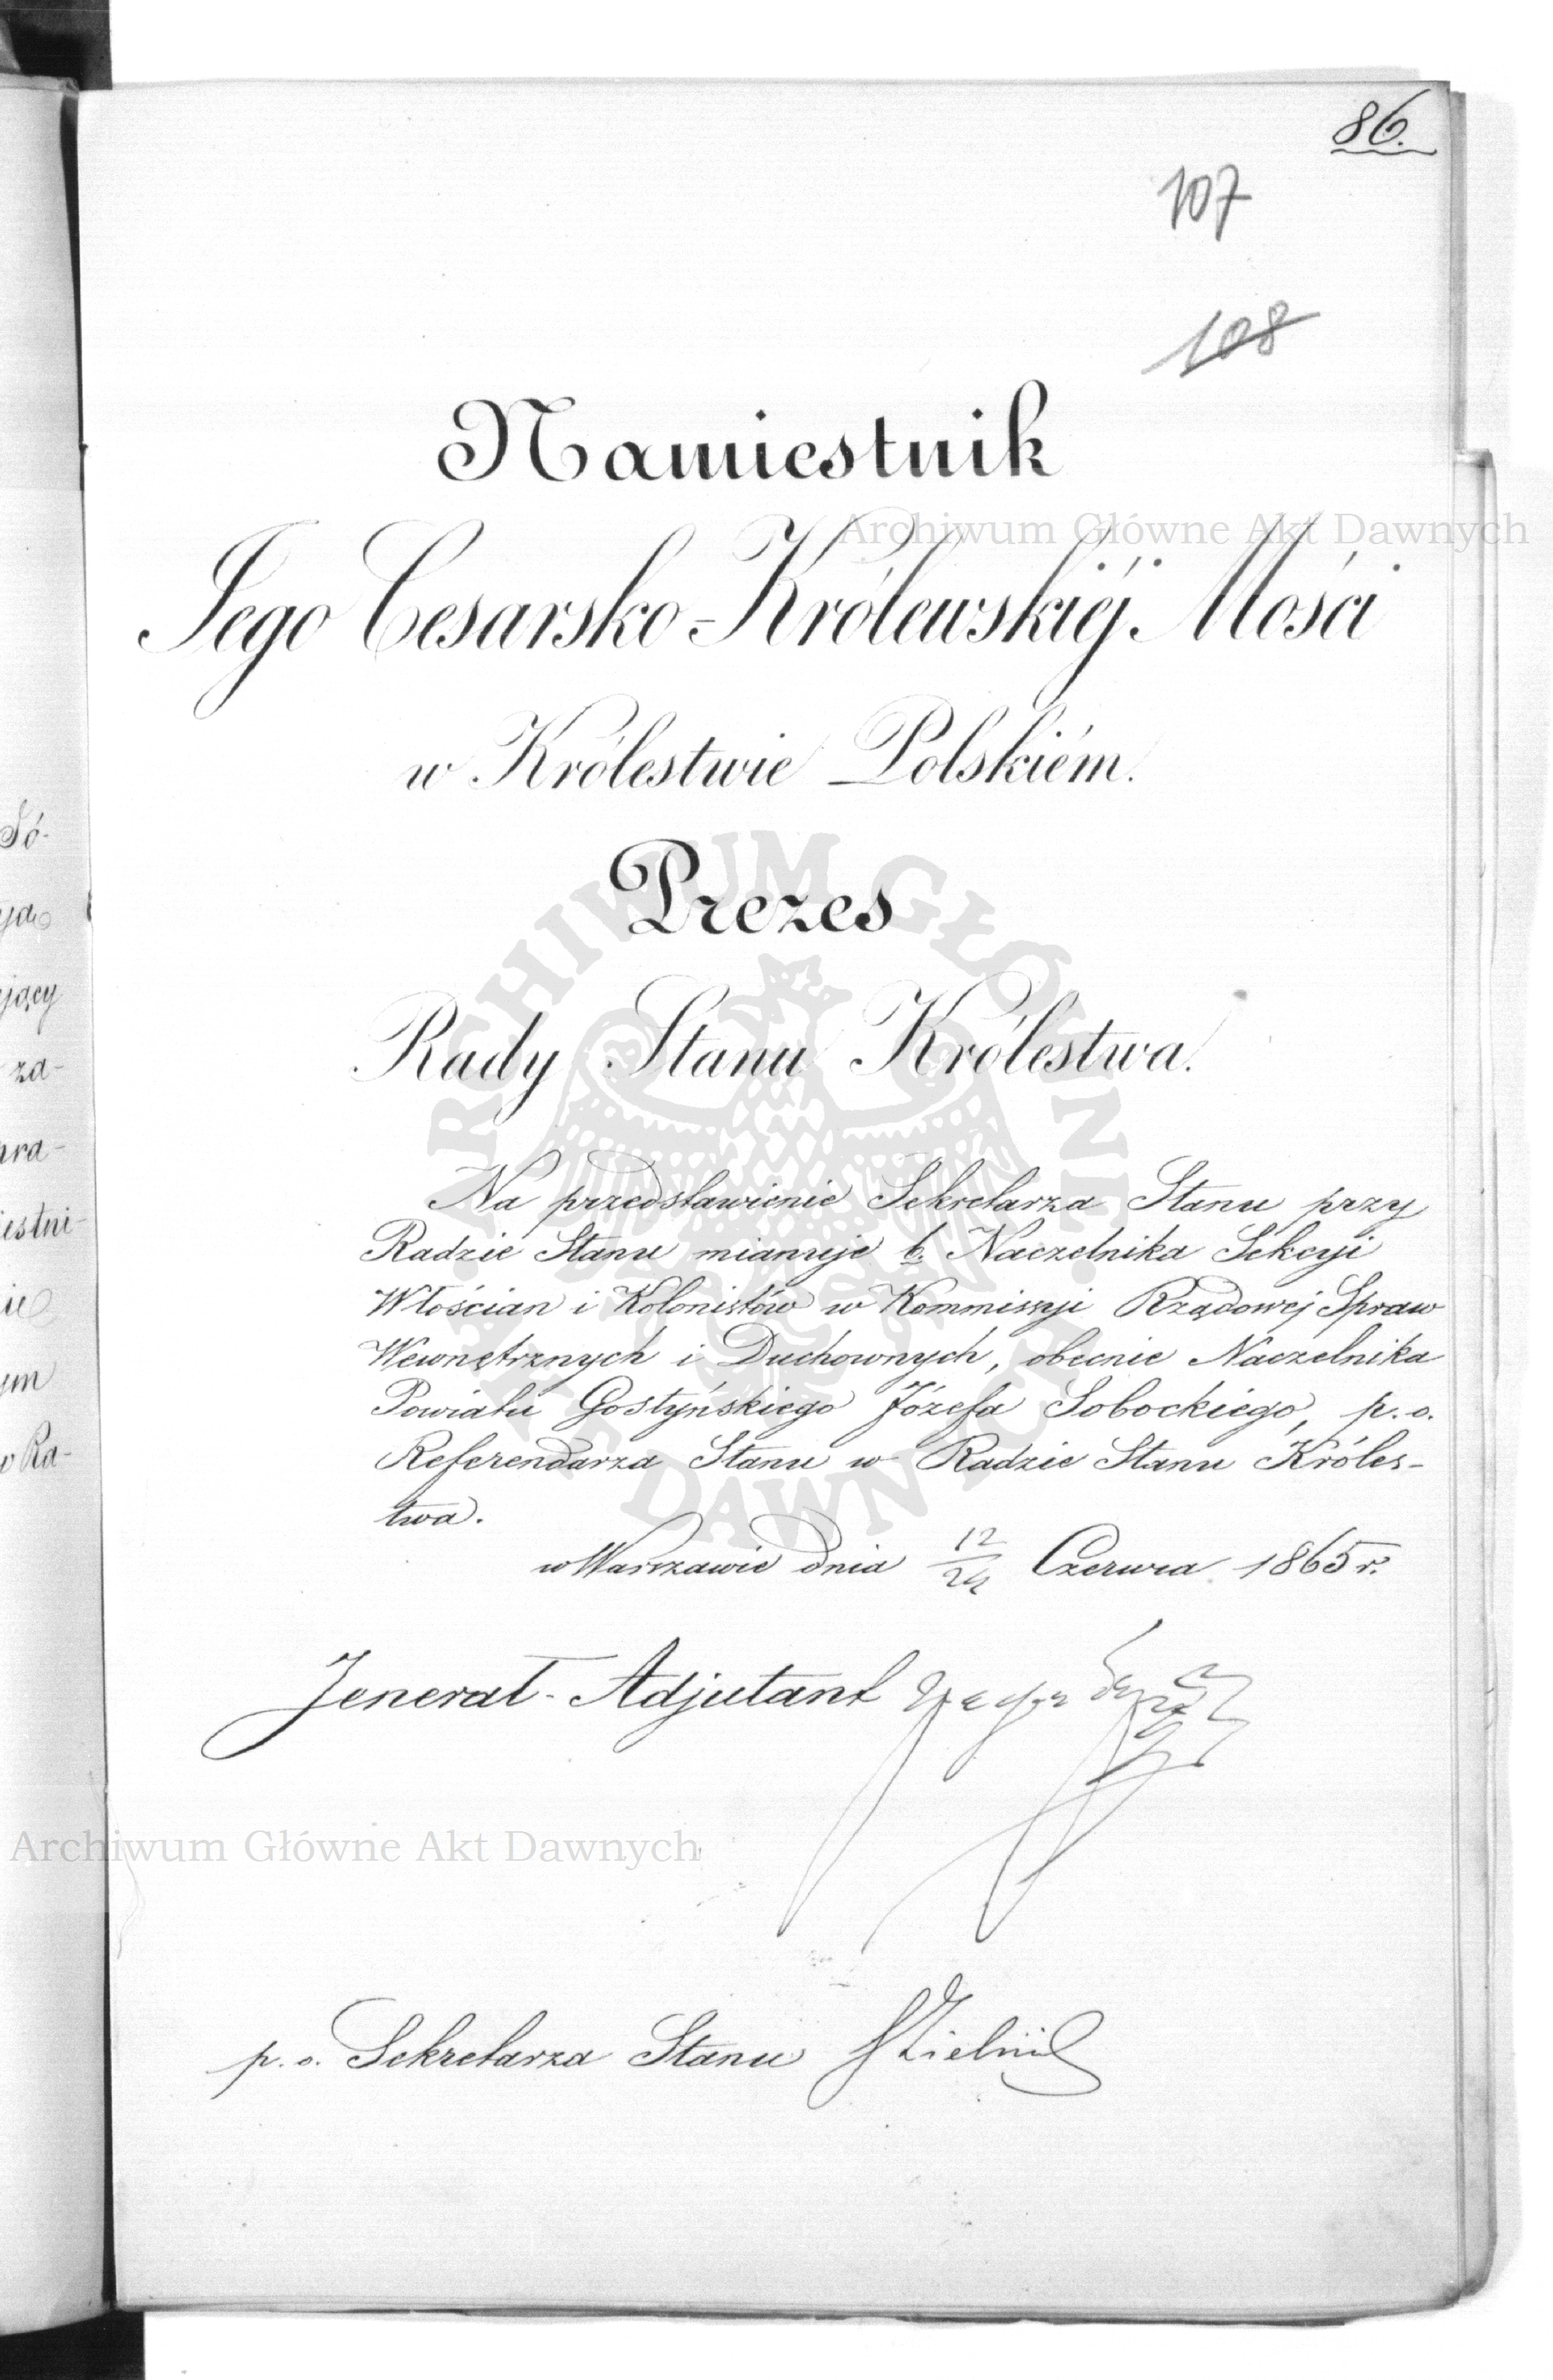 86.
107
108
Namiestnik
Archiwum Główne Akt Dawnych
Jego Cesarsko-Królewskiéj Mości
w Królestwie Polskiém.
Prezes
Rady Stanu Królestwa.
ARCHIWUM GŁÓWNE AKT DAWNYCH
Na przedstawienie Sekretarza Stanu przy
Radzie Stanu mianuje b. Naczelnika Sekcyi
Włościan i Kolonistów w Kommissyi Rządowej Spraw
Wewnętrznych i Duchownych, obecnie Naczelnika
Powiatu Gostyńskiego Józefa Sobockiego, p. o.
Referendarza Stanu w Radzie Stanu Króles-
twa.
w Warszawie dnia 12/24 Czerwca 1865 r.
Jenerał-Adjutant
Archiwum Główne Akt Dawnych
p. o. Sekretarza Stanu
Jó-
jący
za-
pra-
iestni-
ie
ym
w Ra-